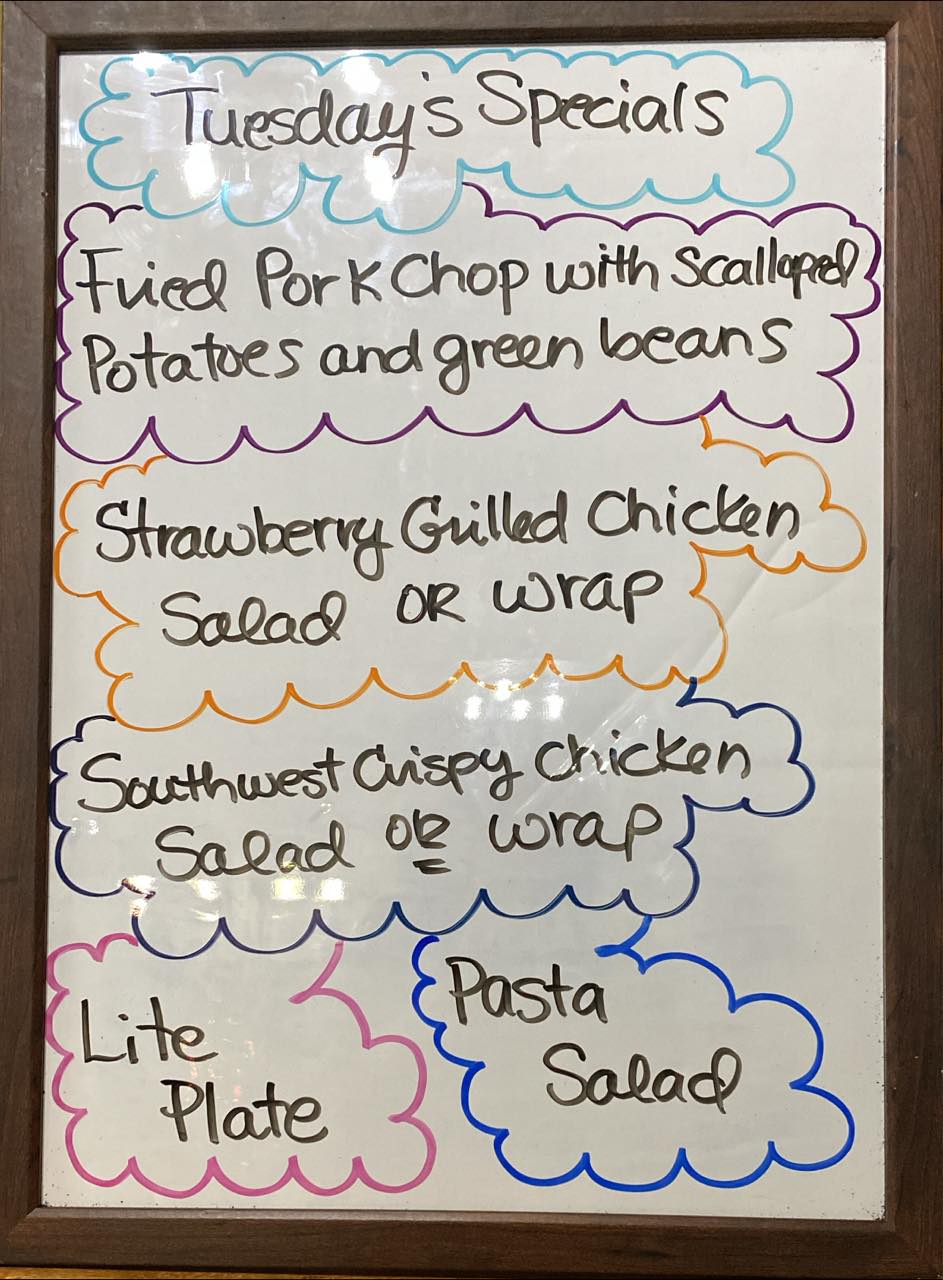 Tuesday's Specials
Fried Pork Chop with Scalloped
Potatoes and green beans
Strawberry Grilled Chicken
Salad OR wrap
Southwest Crispy Chicken
Salad OR wrap
Lite
Plate
Pasta
Salad